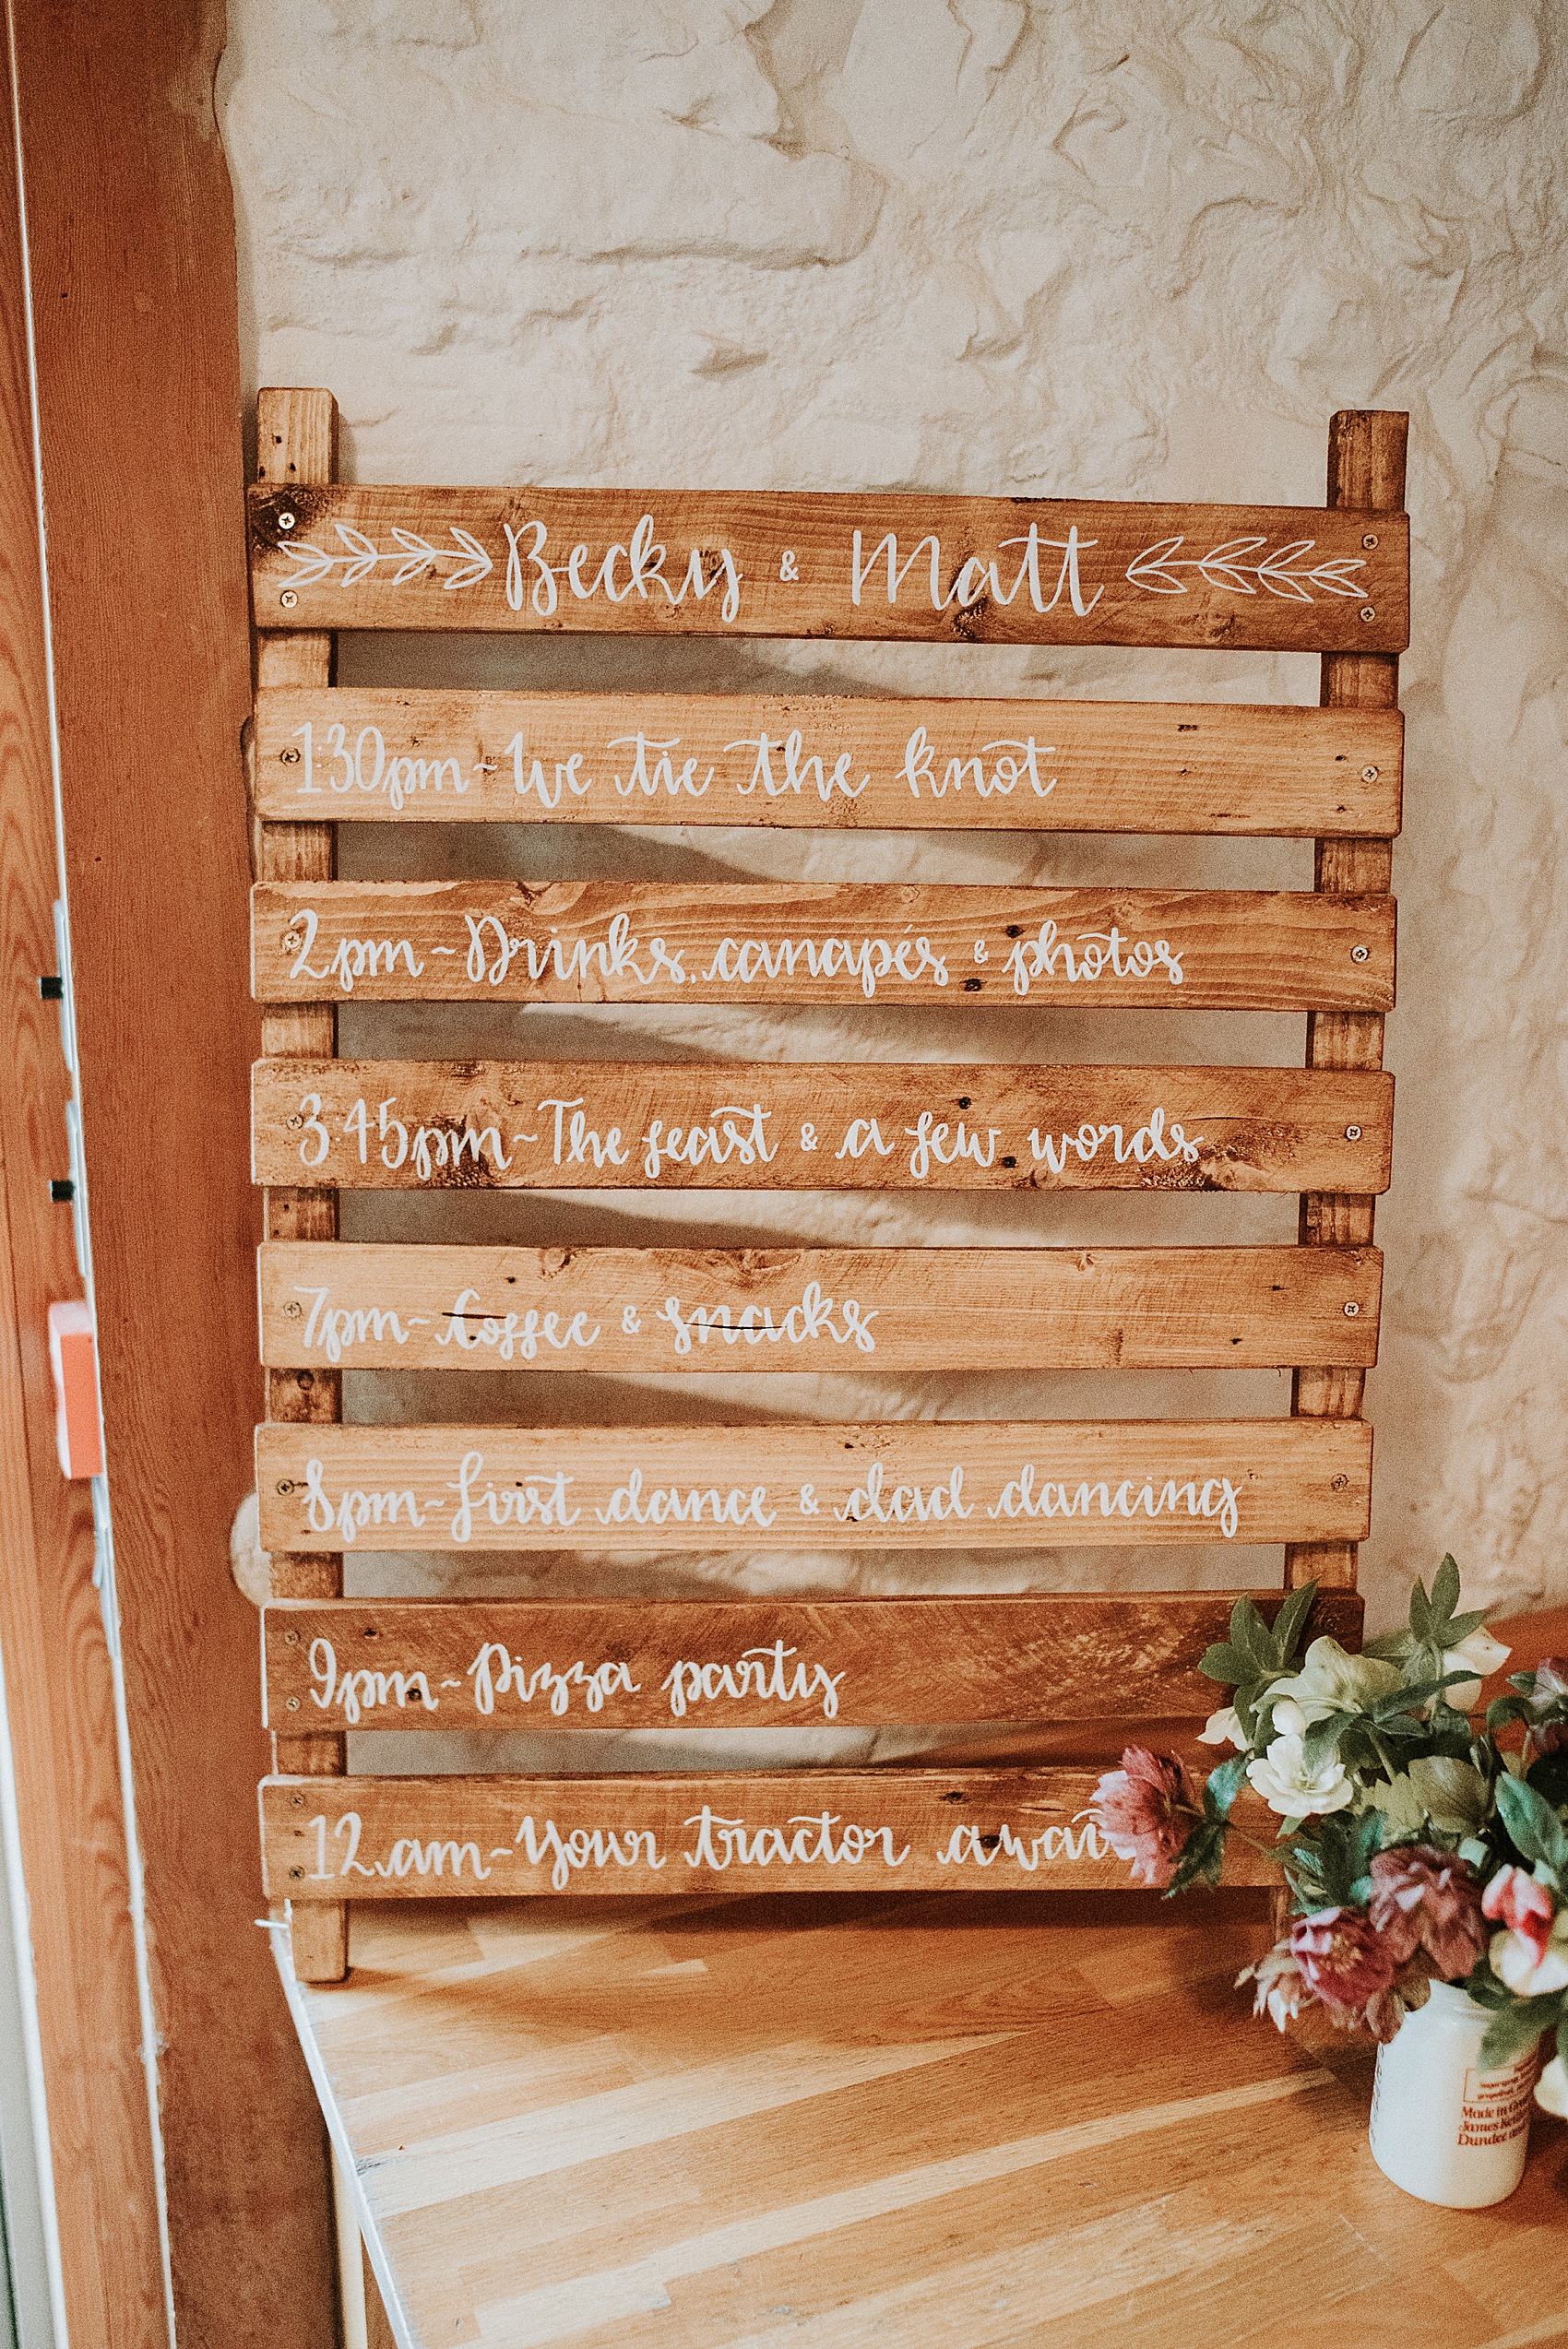 Becky & Matt
1:30pm~We tie the knot
2pm~Drinks, canapés & photos
3:45pm~The feast & a few words
7pm~Coffee & snacks
8pm~first dance & dad dancing
9pm~Pizza party
12am~Your tractor
Made in
James
Dundee